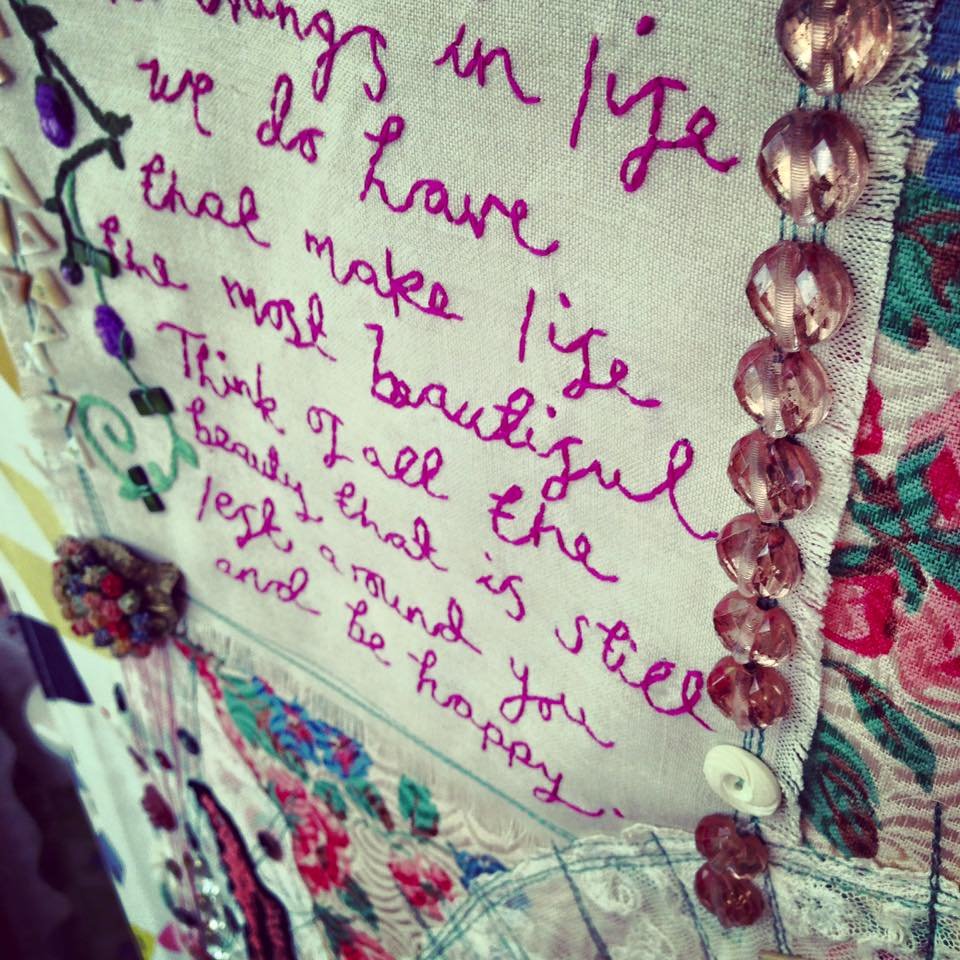 things in life
we do have
that make life
the most beautiful
Think of all the
beauty that is still
left around you
and be happy.